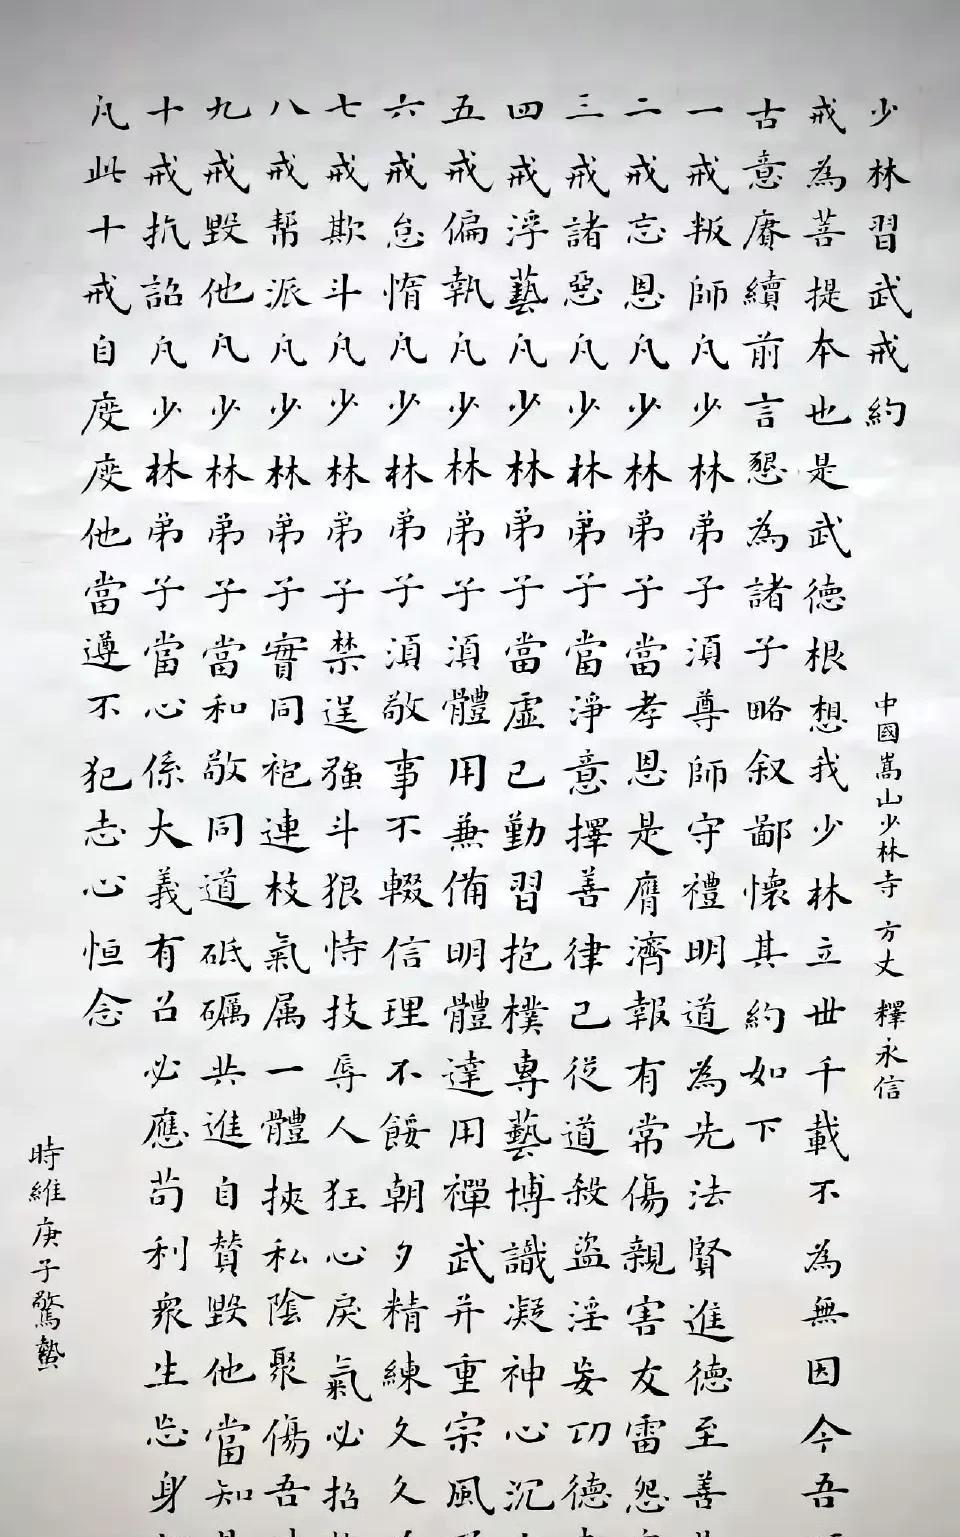 少林習武戒約
中國嵩山少林寺 方丈 釋永信
戒為菩提本也是武德根想我少林立世千載不為無因今吾
古意賡續前言懇為諸子略叙鄙懷其約如下
一戒叛師凡少林弟子須尊師守禮明道為先法賢進德至善
二戒忘恩凡少林弟子當孝恩是膺濟報有常傷親害友雷怨
三戒諸惡凡少林弟子當淨意擇善律己從道殺盜淫妄功德
四戒浮藝凡少林弟子當虛己勤習抱樸專藝博識凝神心沉
五戒偏執凡少林弟子須體用兼備明體達用禪武并重宗風
六戒怠惰凡少林弟子須敬事不輟信理不餒朝夕精練久久
七戒欺斗凡少林弟子禁逞強斗狠恃技辱人狂心戾氣必招
八戒幫派凡少林弟子實同袍連枝氣属一體挾私陰聚傷吾
九戒毀他凡少林弟子當和敬同道砥礪共進自贊毀他當知
十戒抗詔凡少林弟子當心係大義有召必應苟利眾生忘身
凡此十戒自度度他當遵不犯志心恒念
時維庚子驚蟄